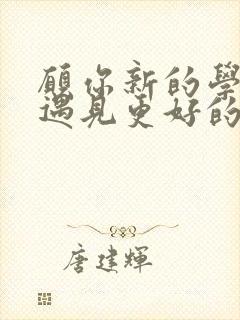 願你新的學
遇見更好的
唐建輝